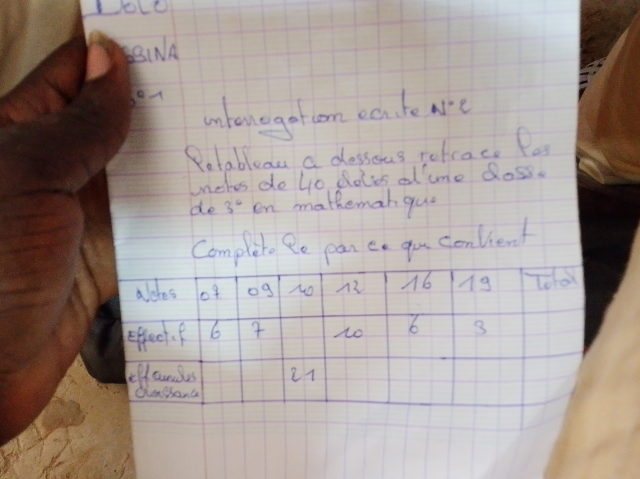 SSINA
interrogation ecrite N°2
Le tableau a dessous retrace les
notes de 40 élèves d'une classe
de 3° en mathematique
Complète le par ce qui convient
Notes 07 09 10 12 16 19 Total
Effectif 6 7 10 6 3
eff cumulés croissance 21